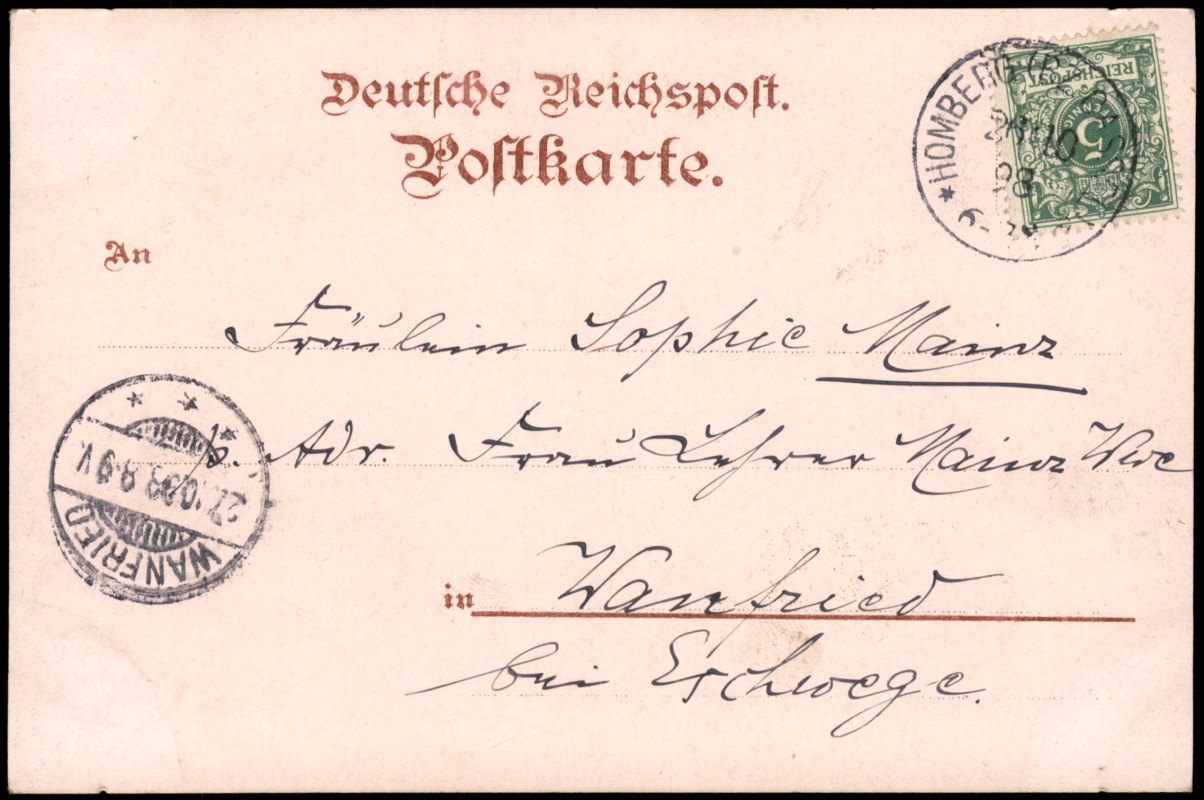 Deutsche Reichspost.
Postkarte.
REICHSPOST
5
* HOMBERG
10
98
An
Fräulein Sophie Mainz
p. Adr. Frau Lehrer Mainz Wwe
27.10.98.8-9V.
WANFRIED
in Wanfried
bei Eschwege.